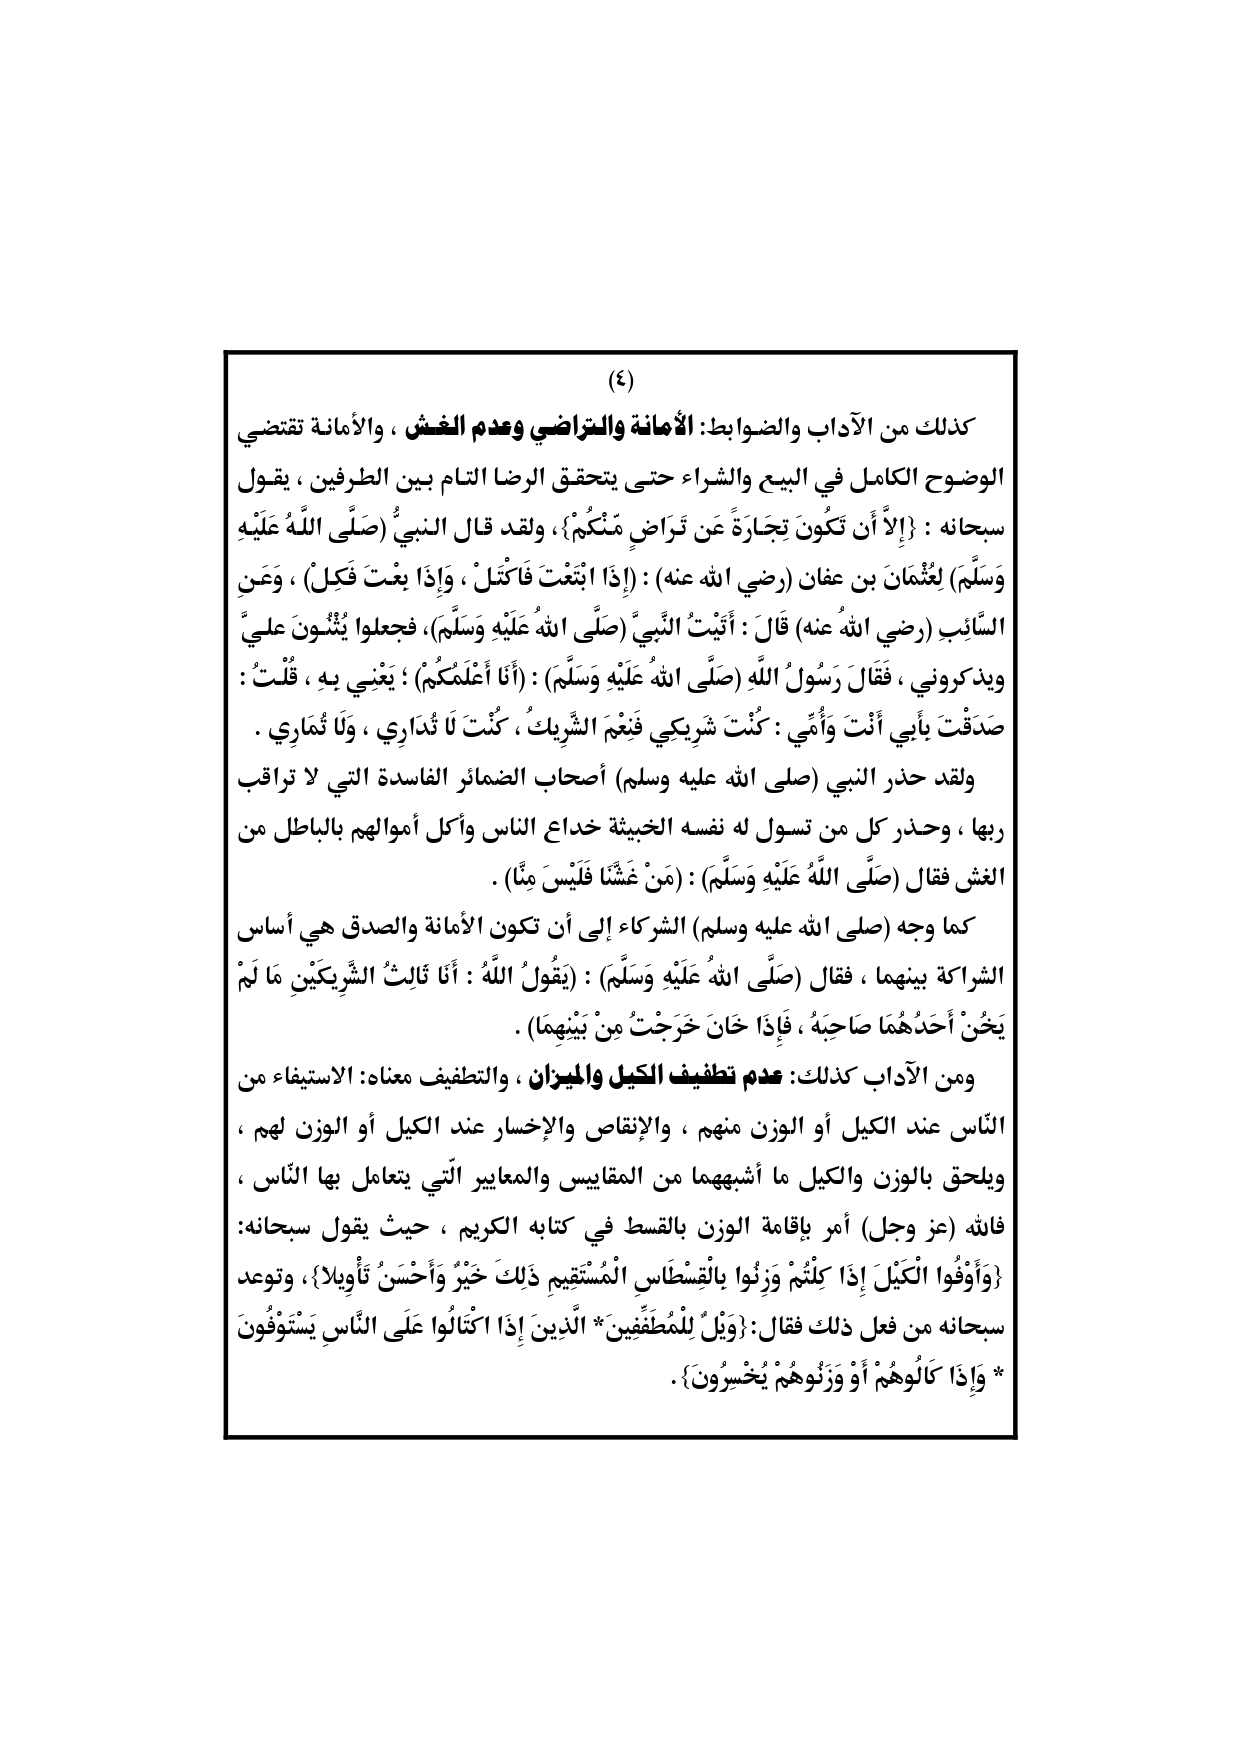 (٤)
كذلك من الآداب والضوابط: الأمانة والتراضي وعدم الغش ، والأمانة تقتضي
الوضوح الكامل في البيع والشراء حتى يتحقق الرضا التام بين الطرفين ، يقول
سبحانه : {إِلاَّ أَن تَكُونَ تِجَارَةً عَن تَرَاضٍ مّنْكُمْ}، ولقد قال النبيُّ (صَلَّى اللَّهُ عَلَيْهِ
وَسَلَّمَ) لِعُثْمَانَ بن عفان (رضي الله عنه) : (إِذَا ابْتَعْتَ فَاكْتَلْ ، وَإِذَا بِعْتَ فَكِلْ) ، وَعَنِ
السَّائِبِ (رضي اللهُ عنه) قَالَ : أَتَيْتُ النَّبِيَّ (صَلَّى اللهُ عَلَيْهِ وَسَلَّمَ)، فجعلوا يُثْنُونَ عليَّ
ويذكروني ، فَقَالَ رَسُولُ اللَّهِ (صَلَّى اللهُ عَلَيْهِ وَسَلَّمَ) : (أَنَا أَعْلَمُكُمْ) ؛ يَعْنِي بِهِ ، قُلْتُ :
صَدَقْتَ بِأَبِي أَنْتَ وَأُمِّي : كُنْتَ شَرِيكِي فَنِعْمَ الشَّرِيكُ ، كُنْتَ لَا تُدَارِي ، وَلَا تُمَارِي .
ولقد حذر النبي (صلى الله عليه وسلم) أصحاب الضمائر الفاسدة التي لا تراقب
ربها ، وحذر كل من تسول له نفسه الخبيثة خداع الناس وأكل أموالهم بالباطل من
الغش فقال (صَلَّى اللَّهُ عَلَيْهِ وَسَلَّمَ) : (مَنْ غَشَّنَا فَلَيْسَ مِنَّا) .
كما وجه (صلى الله عليه وسلم) الشركاء إلى أن تكون الأمانة والصدق هي أساس
الشراكة بينهما ، فقال (صَلَّى اللهُ عَلَيْهِ وَسَلَّمَ) : (يَقُولُ اللَّهُ : أَنَا ثَالِثُ الشَّرِيكَيْنِ مَا لَمْ
يَخُنْ أَحَدُهُمَا صَاحِبَهُ ، فَإِذَا خَانَ خَرَجْتُ مِنْ بَيْنِهِمَا) .
ومن الآداب كذلك: عدم تطفيف الكيل والميزان ، والتطفيف معناه: الاستيفاء من
النّاس عند الكيل أو الوزن منهم ، والإنقاص والإخسار عند الكيل أو الوزن لهم ،
ويلحق بالوزن والكيل ما أشبههما من المقاييس والمعايير الّتي يتعامل بها النّاس ،
فالله (عز وجل) أمر بإقامة الوزن بالقسط في كتابه الكريم ، حيث يقول سبحانه:
{وَأَوْفُوا الْكَيْلَ إِذَا كِلْتُمْ وَزِنُوا بِالْقِسْطَاسِ الْمُسْتَقِيمِ ذَلِكَ خَيْرٌ وَأَحْسَنُ تَأْوِيلا}، وتوعد
سبحانه من فعل ذلك فقال:{وَيْلٌ لِلْمُطَفِّفِينَ* الَّذِينَ إِذَا اكْتَالُوا عَلَى النَّاسِ يَسْتَوْفُونَ
* وَإِذَا كَالُوهُمْ أَوْ وَزَنُوهُمْ يُخْسِرُونَ}.